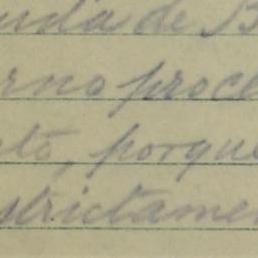 uda de B
erno proce
to, porque
strictamen